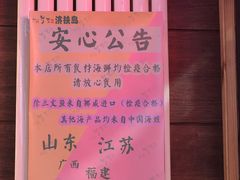 安心公告
本店所有食材海鲜均检疫合格
请放心食用
除三文鱼来自挪威进口（检疫合格）
其他海产品均来自中国海域
山东 江苏
广西 福建